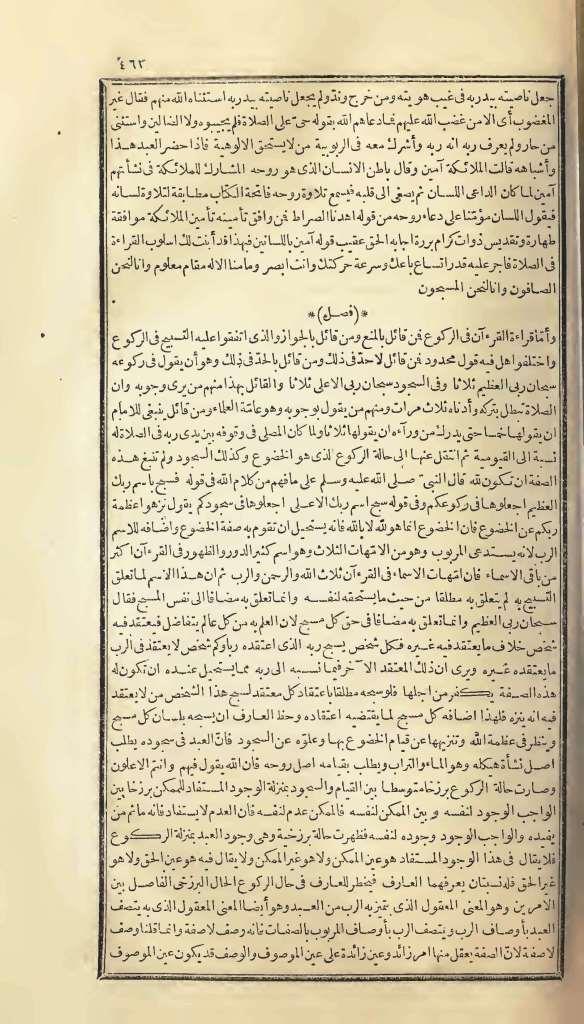 ٤٦٣
جعل ناصيته بيد ربه فى غيب هويته ومن خرج وندّ ولم يجعل ناصيته بيد ربه استثناه الله منهم فقال غير
المغضوب أى الا من غضب الله عليهم لما دعاهم الله بقوله حى على الصلاة فلم يجيبوه ولا الضالين واستثنى
من حار ولم يعرف ربه انه ربه وأشرك معه فى الربوبية من لا يستحق الالوهية فاذا حضر العبد هذا
وأشباهه قالت الملائكة آمين وقال باطن الانسان الذى هو روحه المشارك للملائكة فى نشأتهم
آمين لما كان الداعى اللسان ثم يصغى الى قلبه فيسمع تلاوة روحه فاتحة الكتاب مطابقة لتلاوة لسانه
فيقول اللسان مؤمّنا على دعاء روحه من قوله اهدنا الصراط فمن وافق تأمينه تأمين الملائكة موافقة
طهارة وتقديس ذوات كرام بررة اجابه الحق عقيب قوله آمين باللسانين فهذا قد أبنت لك اسلوب القراءة
فى الصلاة فاجر عليه قدر اتساع باعك وسرعة حركتك وانت ابصر وما منا الا له مقام معلوم وانا لنحن
الصافون وانا لنحن المسبحون
*(فصل)*
وأما قراءة القرءآن فى الركوع فمن قائل بالمنع ومن قائل بالجواز والذى اتفقوا عليه التسبيح فى الركوع
واختلفوا هل فيه قول محدود فمن قائل لا حدّ فى ذلك ومن قائل بالحدّ فى ذلك وهو أن يقول فى ركوعه
سبحان ربى العظيم ثلاثا وفى السجود سبحان ربى الاعلى ثلاثا والقائل بهذا منهم من يرى وجوبه وان
الصلاة تبطل بتركه وأدناه ثلاث مرات ومنهم من يقول بوجوبه وهو عامّة العلماء ومن قائل ينبغى للامام
ان يقولها خمسا حتى يدرك من ورآءه ان يقولها ثلاثا ولما كان المصلى فى وقوفه بين يدى ربه فى الصلاة له
نسبة الى القيومية ثم انتقل عنها الى حالة الركوع الذى هو الخضوع وكذلك السجود ولم تنبغ هذه
الصفة ان تكون لله قال النبىّ صلى الله عليه وسلم على ما فهم من كلام الله فى قوله فسبح باسم ربك
العظيم اجعلوها فى ركوعكم وفى قوله سبح اسم ربك الاعلى اجعلوها فى سجودكم يقول نزهوا عظمة
ربكم عن الخضوع فان الخضوع انما هو لله لا بالله فانه يستحيل ان تقوم به صفة الخضوع واضافه للاسم
الرب لانه يستدعى المربوب وهو من الامّهات الثلاث وهو اسم كثير الدور والظهور فى القرءآن اكثر
من باقى الاسماء فان امّهات الاسماء فى القرءآن ثلاث الله والرحمن والرب ثم ان هذا الاسم لما تعلق
التسبيح به لم يتعلق به مطلقا من حيث ما يستحقه لنفسه وانما تعلق به مضافا الى نفس المسبح فقال
سبحان ربى العظيم وانما تعلق به مضافا فى حق كل مسبح لان العلم به من كل عالم يتفاضل فيعتقد فيه
شخص خلاف ما يعتقد فيه غيره فكل شخص يسبح ربه الذى اعتقده ربا وكم شخص لا يعتقد فى الرب
ما يعتقده غيره ويرى ان ذلك المعتقد الآخر فيما نسبه الى ربه مما يستحيل عنده ان تكون له
هذه الصفة يكفر من اجلها فلو سبحه مطلقا باعتقاد كل معتقد لسبح هذا الشخص من لا يعتقد
فيه انه ينزه فلهذا اضافه كل مسبح لما يقتضيه اعتقاده وحظ العارف ان يسبحه بلسان كل مسبح
وينظر فى عظمة الله وتنزيهها عن قيام الخضوع بها وعلوّه عن السجود فانّ العبد فى سجوده يطلب
اصل نشأة هيكله وهو الماء والتراب ويطلب بقيامه اصل روحه فان الله يقول فيهم وانتم الاعلون
وصارت حالة الركوع برزخا متوسطا بين القيام والسجود بمنزلة الوجود المستفاد للممكن برزخا بين
الواجب الوجود لنفسه وبين الممكن لنفسه فالممكن عدم لنفسه فان العدم لا يستفاد فانه ما ثم من
يفيده والواجب الوجود وجوده لنفسه فظهرت حالة برزخية وهى وجود العبد بمنزلة الركوع
فلا يقال فى هذا الوجود المستفاد هو عين الممكن ولا هو غير الممكن ولا يقال فيه هو عين الحق ولا هو
غير الحق فله نسبتان يعرفهما العارف فيخطر للعارف فى حال الركوع الحال البرزخى الفاصل بين
الامرين وهو المعنى المعقول الذى به يتميز الرب من العبد وهو أيضا المعنى المعقول الذى به يتصف
العبد بأوصاف الرب ويتصف الرب بأوصاف المربوب بالصفات فانه وصف لا صفة وانما قلنا وصف
لا صفة لانّ الصفة يعقل منها امر زائد وعين زائدة على عين الموصوف والوصف قد يكون عين الموصوف